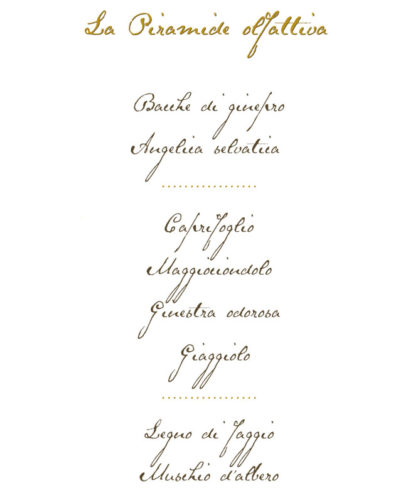 La Piramide olfattiva
Bacche di ginepro
Angelica selvatica
.................
Caprifoglio
Maggiociondolo
Ginestra odorosa
Giaggiolo
.................
Legno di faggio
Muschio d'albero